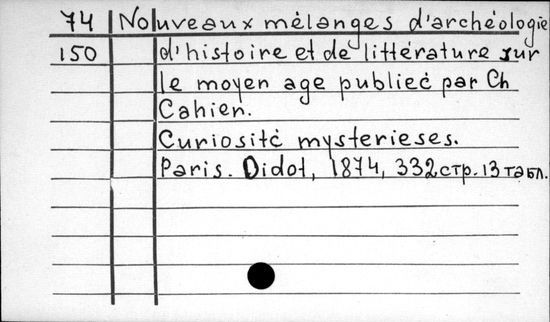 74 Nouveaux mélanges d'archéologie
150 d'histoire et de littérature sur
le moyen age publieé par Ch
Cahier.
Curiosité mysterieses.
Paris. Didot, 1874, 332 стр. 13 табл.